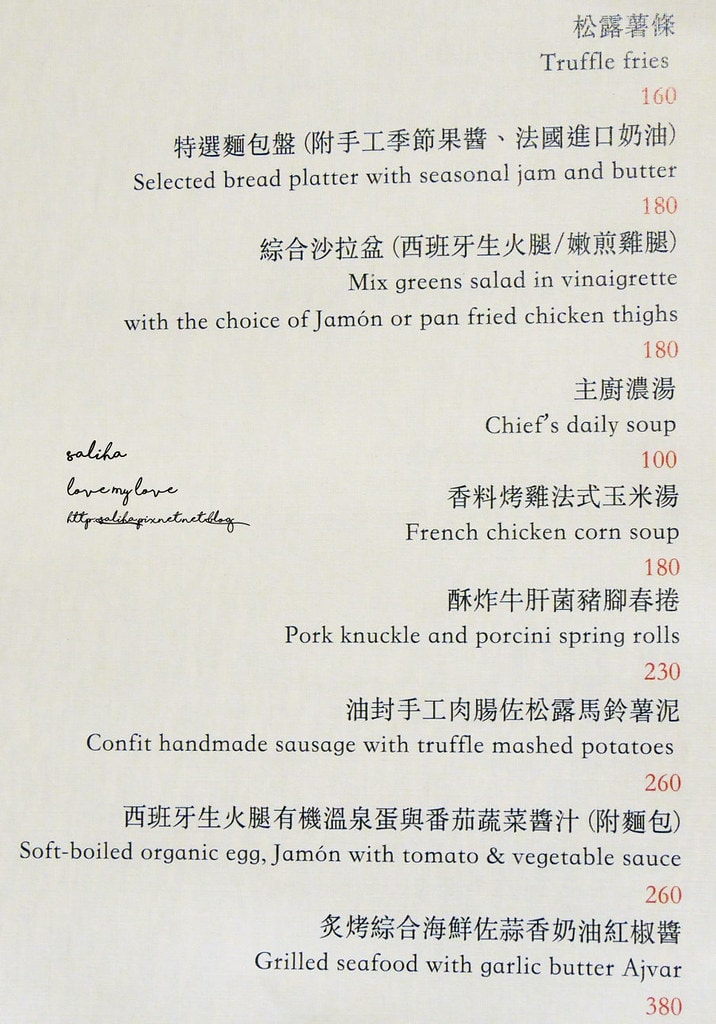 松露薯條
Truffle fries
160
特選麵包盤 (附手工季節果醬、法國進口奶油)
Selected bread platter with seasonal jam and butter
180
綜合沙拉盆 (西班牙生火腿/嫩煎雞腿)
Mix greens salad in vinaigrette
with the choice of Jamón or pan fried chicken thighs
180
主廚濃湯
Chief's daily soup
100
saliha
love my love
香料烤雞法式玉米湯
French chicken corn soup
180
酥炸牛肝菌豬腳春捲
Pork knuckle and porcini spring rolls
230
油封手工肉腸佐松露馬鈴薯泥
Confit handmade sausage with truffle mashed potatoes
260
西班牙生火腿有機溫泉蛋與番茄蔬菜醬汁 (附麵包)
Soft-boiled organic egg, Jamón with tomato & vegetable sauce
260
炙烤綜合海鮮佐蒜香奶油紅椒醬
Grilled seafood with garlic butter Ajvar
380